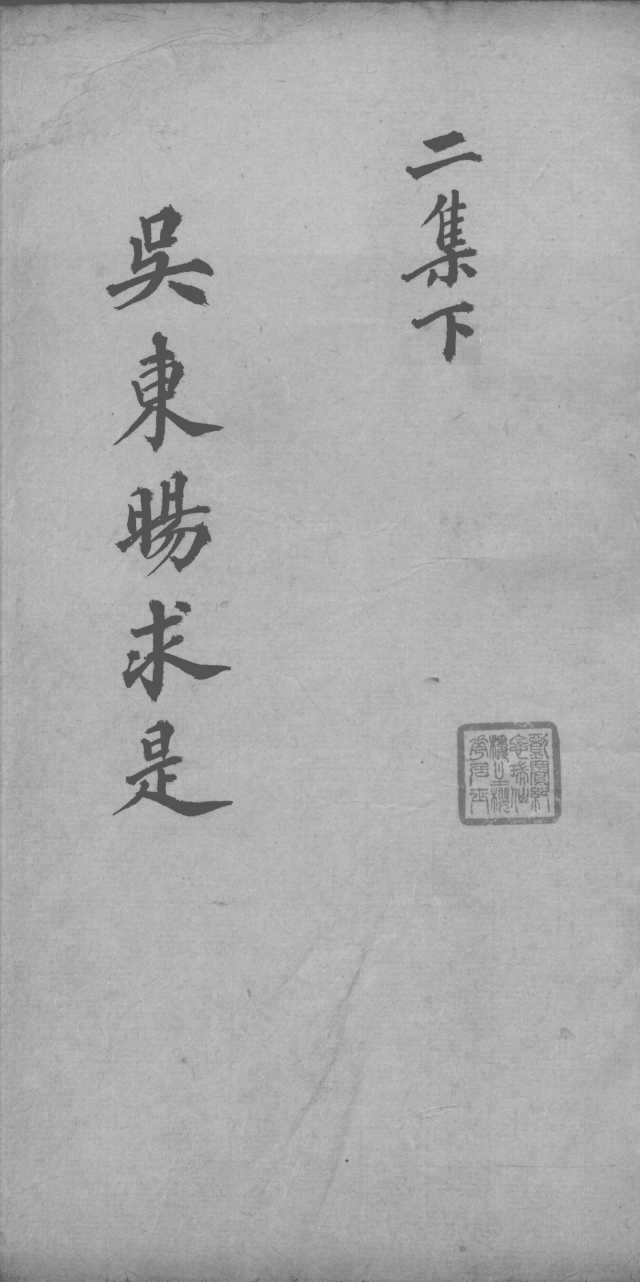 二集下
吳東暘求是